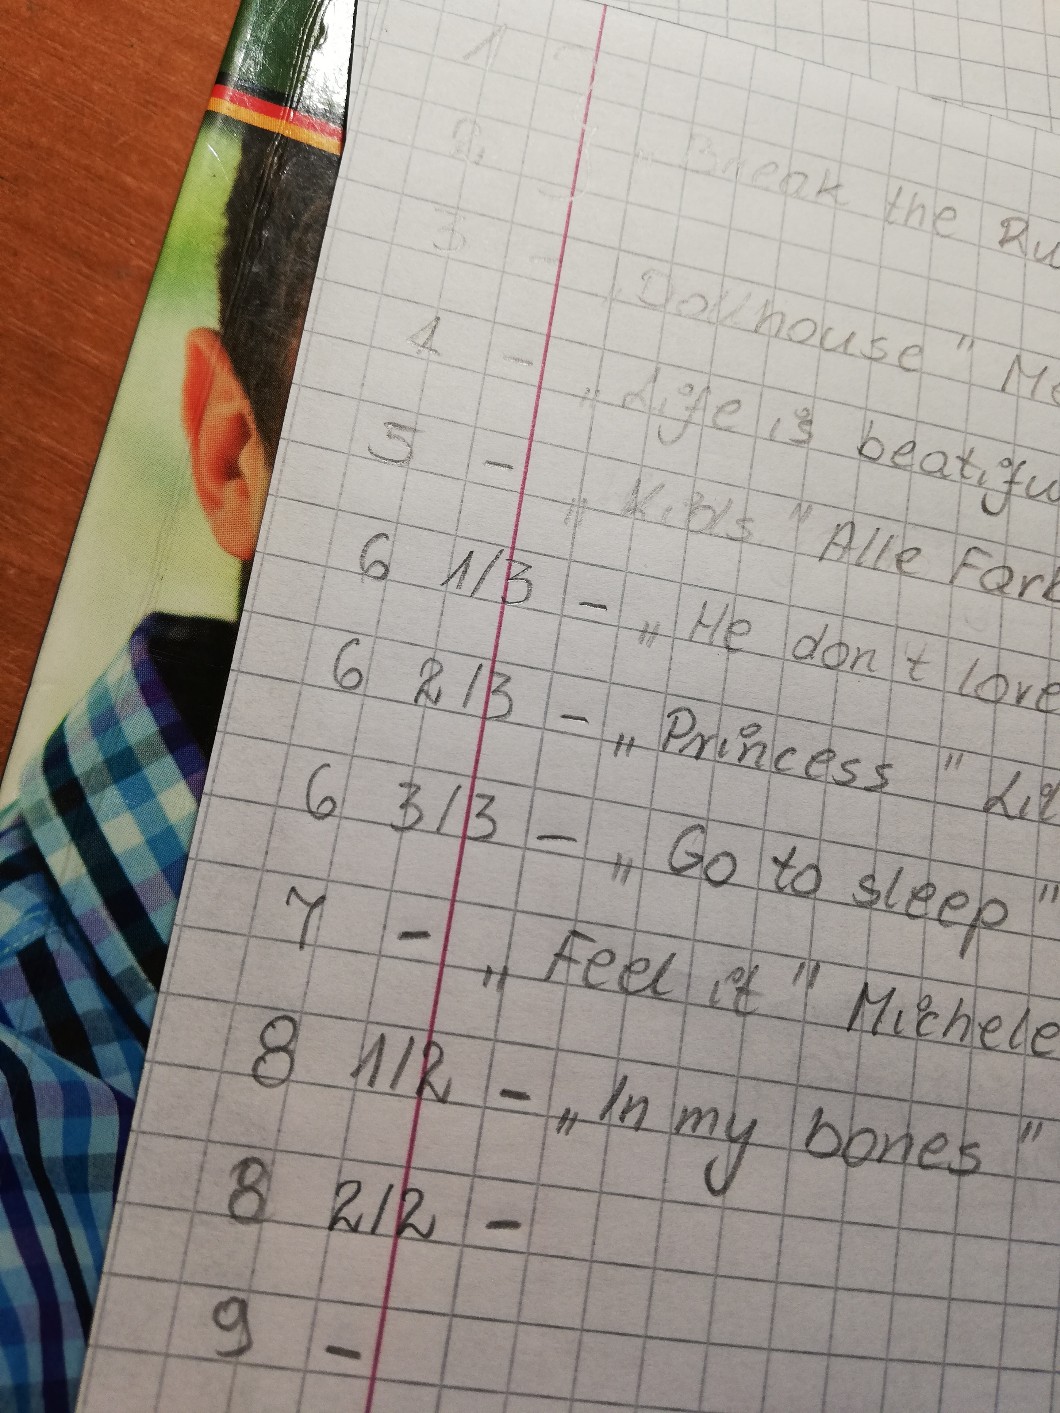 1 -
2 - „Break the Ru
3 - „Dollhouse" Me
4 - „Life is beatifu
5 - „Kids" Alle Farb
6 1/3 - „He don't love
6 2/3 - „Princess" Lit
6 3/3 - „Go to sleep"
7 - „Feel it" Michele
8 1/2 - „In my bones"
8 2/2 -
9 -